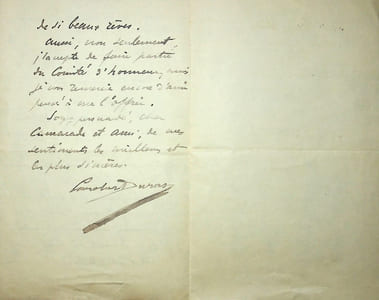 de si beaux rêves.
Aussi, non seulement,
j'accepte de faire partie
du Comité d'honneur, mais
je vous remercie encore d'avoir
pensé à me l'offrir.
Soyez persuadé, cher
Camarade et ami, de mes
sentiments les meilleurs et
les plus sincères.